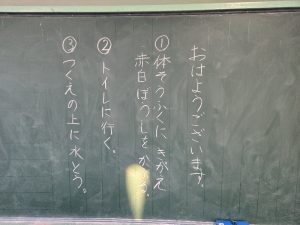 おはようございます。
①体そうふくに きがえ
赤白ぼうしをかぶる。
②トイレに行く。
③つくえの上に水とう。